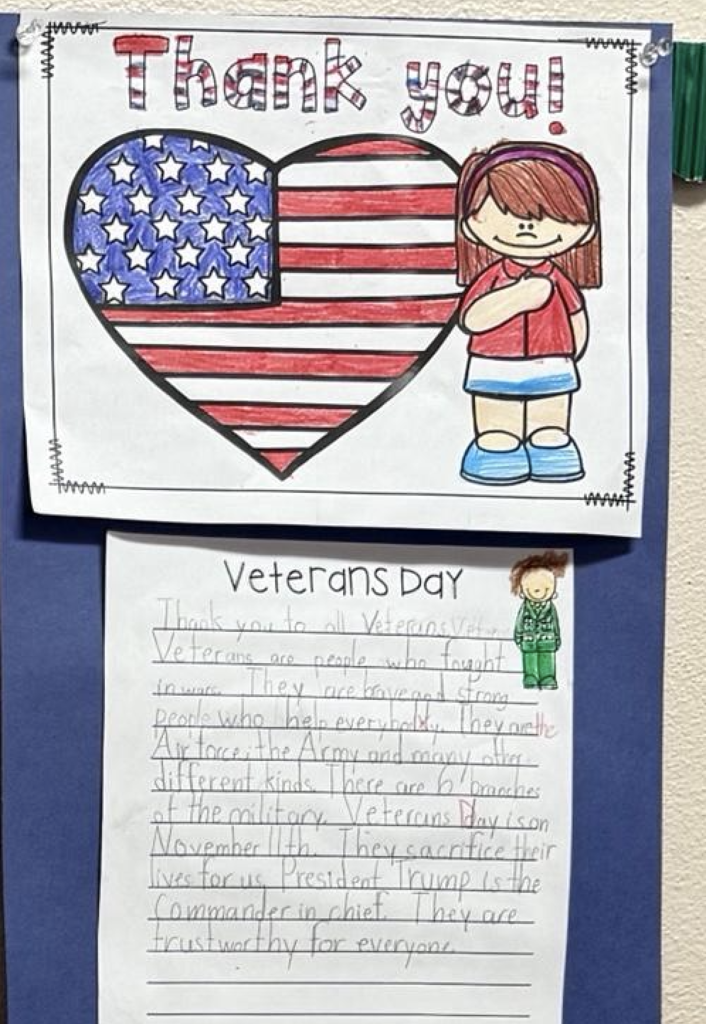 Thank you!
Veterans Day
Thank you to all Veterans
Veterans are people who fought
in wars. They are brave and strong
people who help everybody. They are the
Air force, the Army and many other
different kinds. There are 6 branches
of the military. Veterans Day is on
November 11th. They sacrifice their
lives for us. President Trump is the
Commander in chief. They are
trustworthy for everyone.